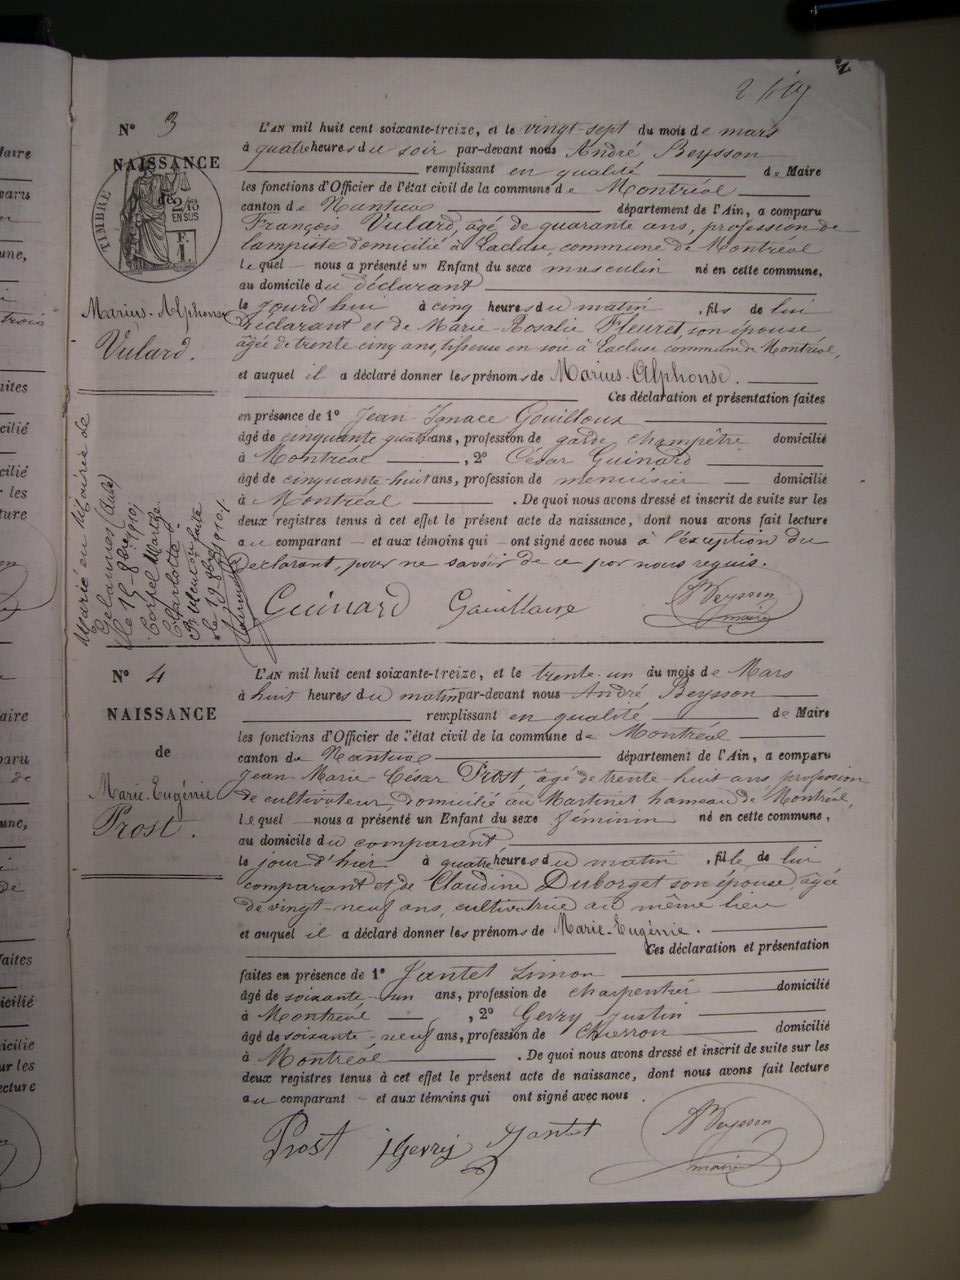 N° 3
NAISSANCE
de
TIMBRE
2/10
EN SUS
F.
1.
Marius-Alphonse
Vulard.
L'AN mil huit cent soixante-treize, et le vingt-sept du mois de mars
à quatre heures du soir par-devant nous André Beysson
remplissant en qualité de Maire
les fonctions d'Officier de l'état civil de la commune de Montréal
canton de Nantua département de l'Ain, a comparu
François Vulard, âgé de quarante ans, profession de
lampiste domicilié à Lacluse, commune de Montréal
lequel nous a présenté un Enfant du sexe masculin né en cette commune,
au domicile du déclarant
le jourd'hui à cinq heures du matin, fils de lui
déclarant et de Marie-Rosalie Fleuret, son épouse
âgée de trente cinq ans, tisseuse en soie à Lacluse commune de Montréal,
et auquel il a déclaré donner les prénoms de Marius-Alphonse.
Ces déclaration et présentation faites
en présence de 1° Jean-Ignace Gouilloux
âgé de cinquante quatre ans, profession de garde champêtre domicilié
à Montréal, 2° César Guinard
âgé de cinquante-huit ans, profession de menuisier domicilié
à Montréal. De quoi nous avons dressé et inscrit de suite sur les
deux registres tenus à cet effet le présent acte de naissance, dont nous avons fait lecture
au comparant et aux témoins qui ont signé avec nous à l'exception du
déclarant, pour ne savoir de ce par nous requis.
Guinard Gouilloux Beysson
maire
Marié en Mairie de
(Aude)
le 15 8bre 1910,
Charlotte
Mention faite
le 19 8bre 1910,
N° 4
NAISSANCE
de
Marie-Eugénie
Prost.
L'AN mil huit cent soixante-treize, et le trente-un du mois de Mars
à huit heures du matin par-devant nous André Beysson
remplissant en qualité de Maire
les fonctions d'Officier de l'état civil de la commune de Montréal
canton de Nantua département de l'Ain, a comparu
Jean-Marie-César Prost, âgé de trente-huit ans, profession
de cultivateur, domicilié au Martinet hameau de Montréal,
lequel nous a présenté un Enfant du sexe féminin né en cette commune,
au domicile du comparant,
le jour d'hier à quatre heures du matin, fille de lui
comparant et de Claudine Duborget son épouse, âgée
de vingt-neuf ans, cultivatrice au même lieu
et auquel il a déclaré donner les prénoms de Marie-Eugénie.
Ces déclaration et présentation
faites en présence de 1° Jantet Simon
âgé de soixante-un ans, profession de charpentier domicilié
à Montréal, 2° Gevry Justin
âgé de soixante-neuf ans, profession de domicilié
à Montréal. De quoi nous avons dressé et inscrit de suite sur les
deux registres tenus à cet effet le présent acte de naissance, dont nous avons fait lecture
au comparant et aux témoins qui ont signé avec nous.
Prost J Gevry Jantet Beysson
maire